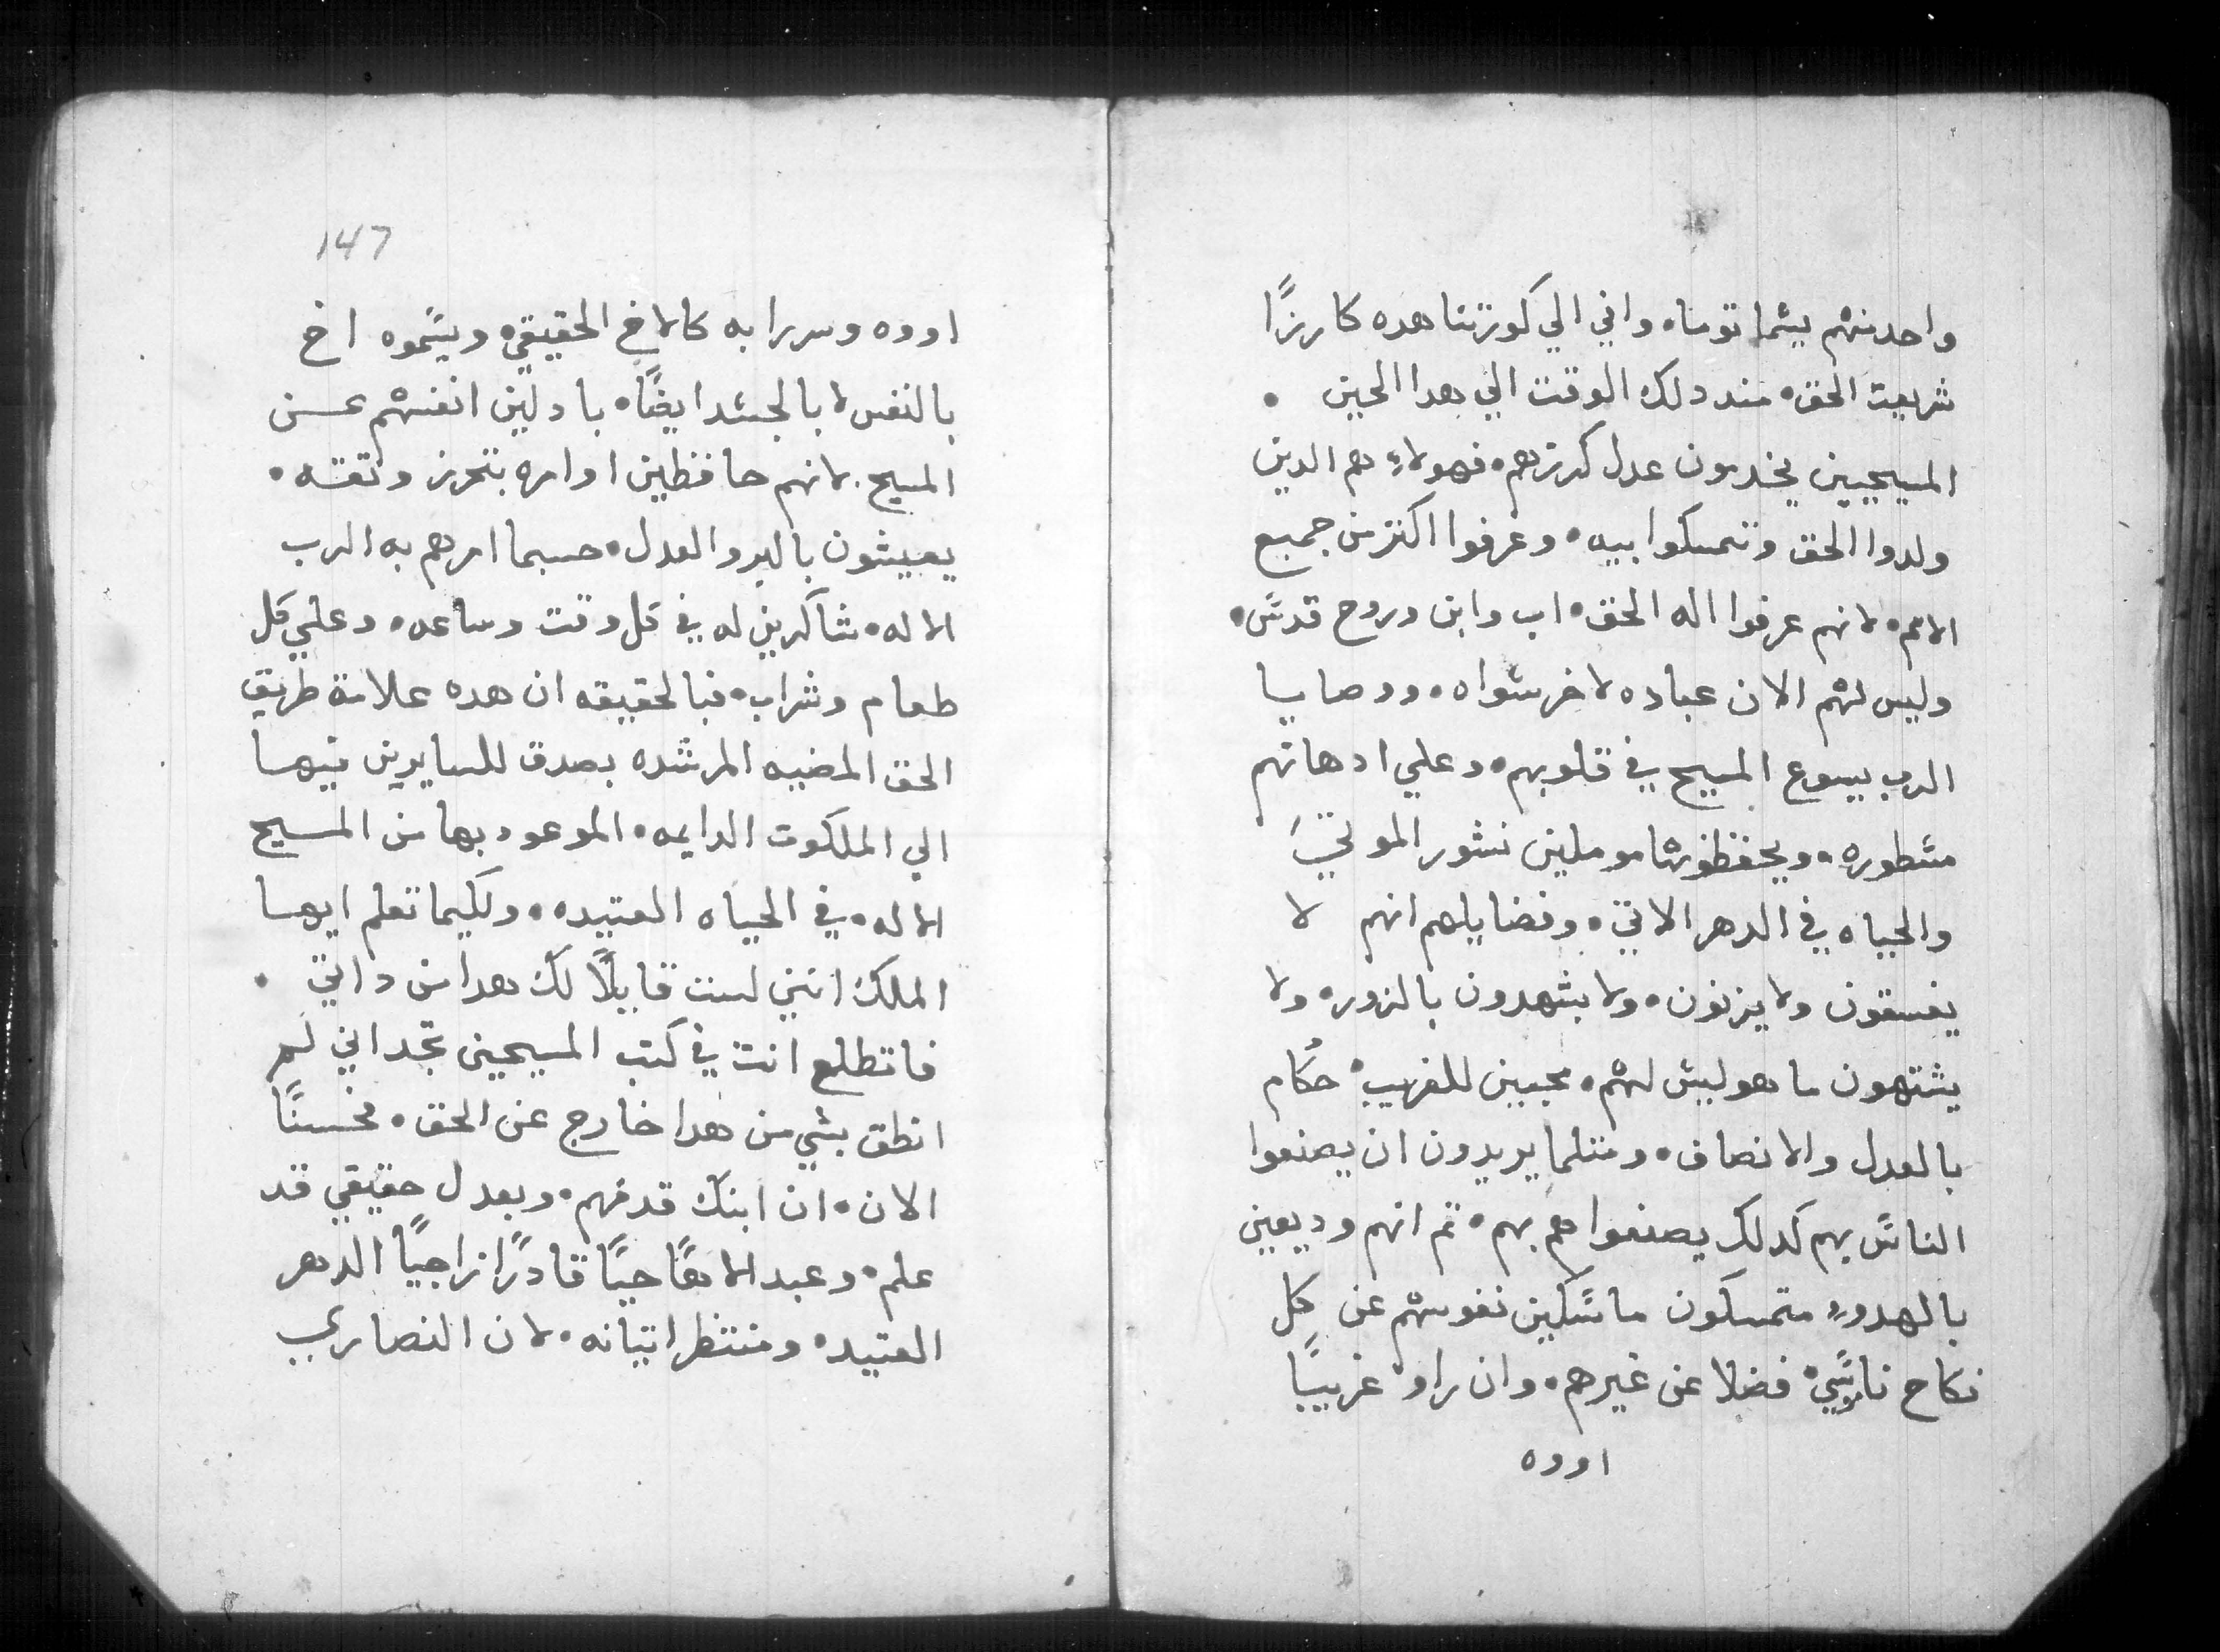 واحد منهم يسما توما ٠ واني الي كورتنا هده كارزًا
شريعت الحق ٠ مند دلك الوقت الي هدا الحين ٠
المسيحيين يخدمون عدل كرزهم ٠ فهولاءِ هم الدين
ولدوا الحق وتمسكوا بيه ٠ وعرفوا اكتر من جميع
الامم ٠ لانهم عرفوا اله الحق ٠ اب وابن وروح قدس ٠
وليس لهم الان عباده لاخر سواه ٠ ووصايا
الرب يسوع المسيح في قلوبهم ٠ وعلي ادهانهم
مسطوره ٠ ويحفظونها موملين نشور الموتي
والحياه في الدهر الاتي ٠ وفضايلهم انهم لا
يفسقون ولا يزنون ٠ ولا يشهدون بالزور ٠ ولا
يشتهون ما هو ليس لهم ٠ محبين للغريب ٠ حكام
بالعدل والانصاف ٠ ومتلما يريدون ان يصنعوا
الناس بهم كدلك يصنعوا هم بهم ٠ تم انهم وديعين
بالهدوء متمسكون ماسكين نفوسهم عن كل
نكاح ناموسي ٠ فضلا عن غيرهم ٠ وان راو غريبًا
اووه
147
اووه وسررا به كالاخ الحقيقي ٠ ويسموه اخ
بالنفس لا بالجسد ايضًا ٠ بادلين انفسهم عسن
المسيح ٠ لانهم حافظين اوامره بتحرز وتقته ٠
يعيشون بالبر والعدل ٠ حسبما امرهم به الرب
الاله ٠ شاكرين له في كل وقت وساعه ٠ وعلي كل
طعام وشراب ٠ فبالحقيقه ان هده علامة طريق
الحق المضيه المرشده بصدق للسايرين فيها
الي الملكوت الدايمه ٠ الموعود بها من المسيح
الاله ٠ في الحياه العتيده ٠ ولكيما تعلم ايها
الملك انني لست قايلًا لك هدا من داتي ٠
فاتطلع انت في كتب المسيحين تجد اني لم
انطق بشي من هدا خارج عن الحق ٠ فحسنًا
الان ٠ ان ابنك قد فهم ٠ وبعدل حقيقي قد
علم ٠ وعبد الاهًا حيًا قادرًا راجيًا الدهر
العتيد ٠ ومنتظر اتيانه ٠ لان النصاري